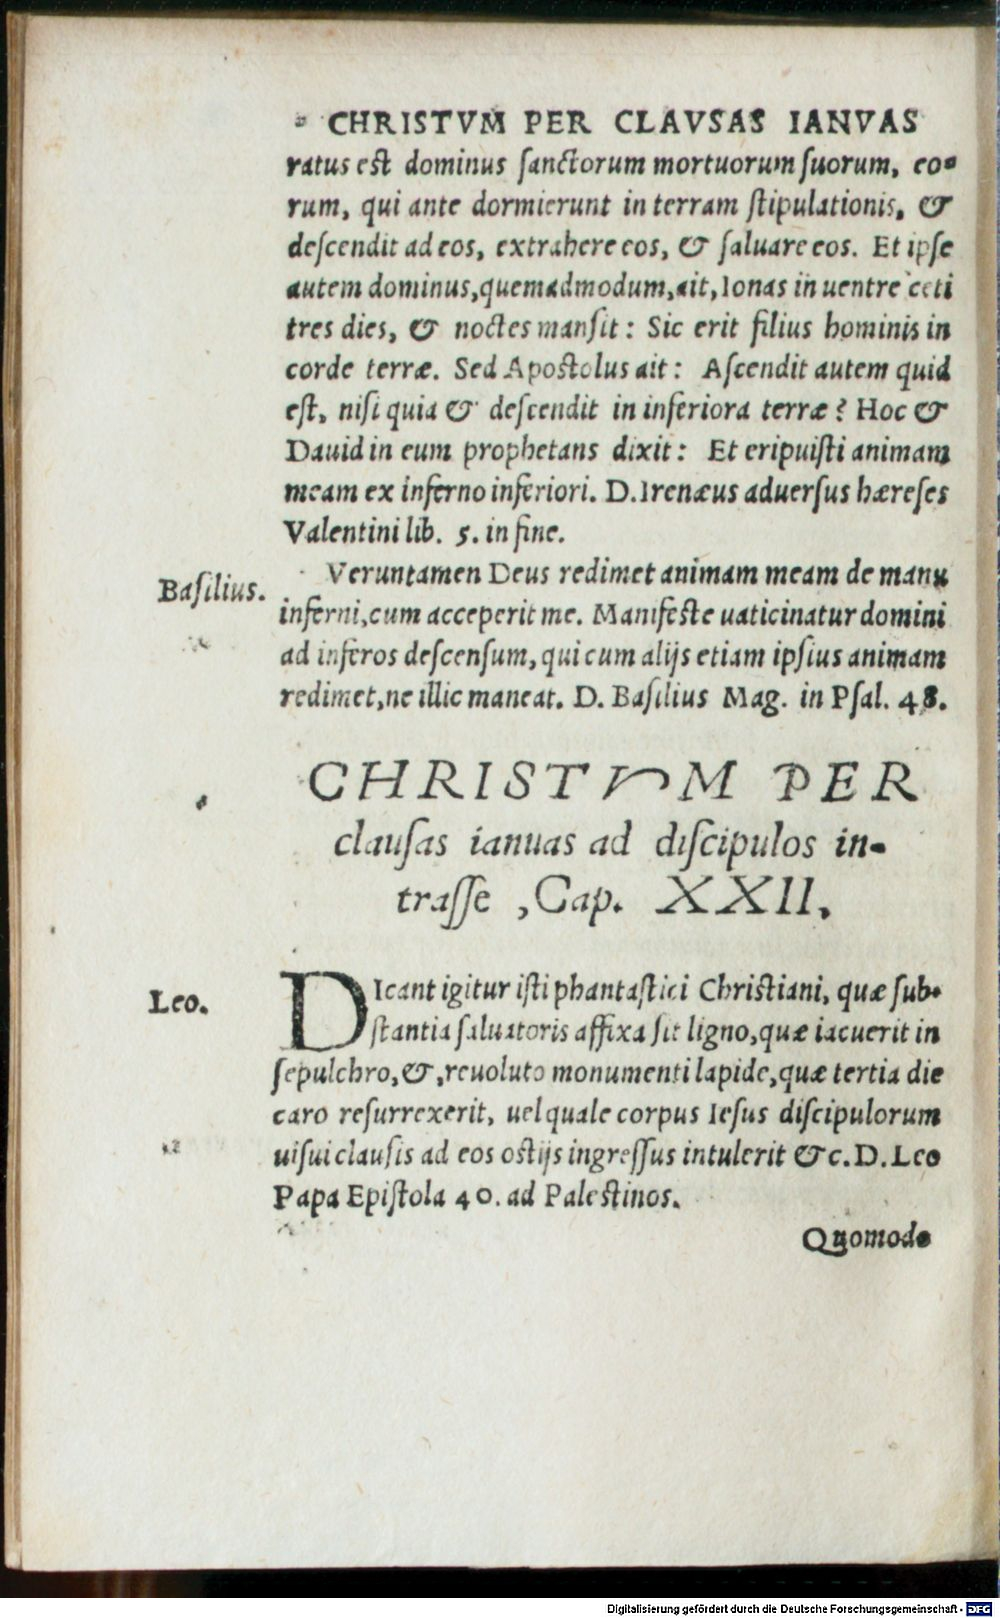 CHRISTVM PER CLAVSAS IANVAS
ratus est dominus sanctorum mortuorum suorum, eo-
rum, qui ante dormierunt in terram stipulationis, &
descendit ad eos, extrahere eos, & saluare eos. Et ipse
autem dominus, quemadmodum, ait, Ionas in uentre ceti
tres dies, & noctes mansit: Sic erit filius hominis in
corde terræ. Sed Apostolus ait: Ascendit autem quid
est, nisi quia & descendit in inferiora terræ? Hoc &
Dauid in eum prophetans dixit: Et eripuisti animam
meam ex inferno inferiori. D. Irenæus aduersus hæreses
Valentini lib. 5. in fine.
Basilius.
Veruntamen Deus redimet animam meam de manu
inferni, cum acceperit me. Manifeste uaticinatur domini
ad inferos descensum, qui cum alijs etiam ipsius animam
redimet, ne illic maneat. D. Basilius Mag. in Psal. 48.
CHRISTVM PER
clausas ianuas ad discipulos in-
trasse, Cap. XXII.
Leo.
DIcant igitur isti phantastici Christiani, quæ sub-
stantia saluatoris affixa sit ligno, quæ iacuerit in
sepulchro, &, reuoluto monumenti lapide, quæ tertia die
caro resurrexerit, uel quale corpus Iesus discipulorum
uisui clausis ad eos ostijs ingressus intulerit &c. D. Leo
Papa Epistola 40. ad Palestinos.
Quomodo
Digitalisierung gefördert durch die Deutsche Forschungsgemeinschaft - DFG